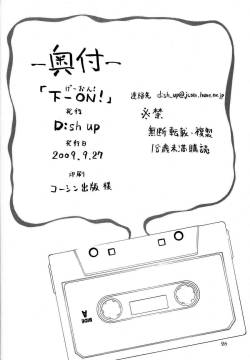 奥付
げーおん!
「下-ON!」
発行
D:sh up
発行日
2009.9.27
印刷
コーシン出版 様
連絡先
必禁
無断転載・複製
18歳未満購読
SIDE
A